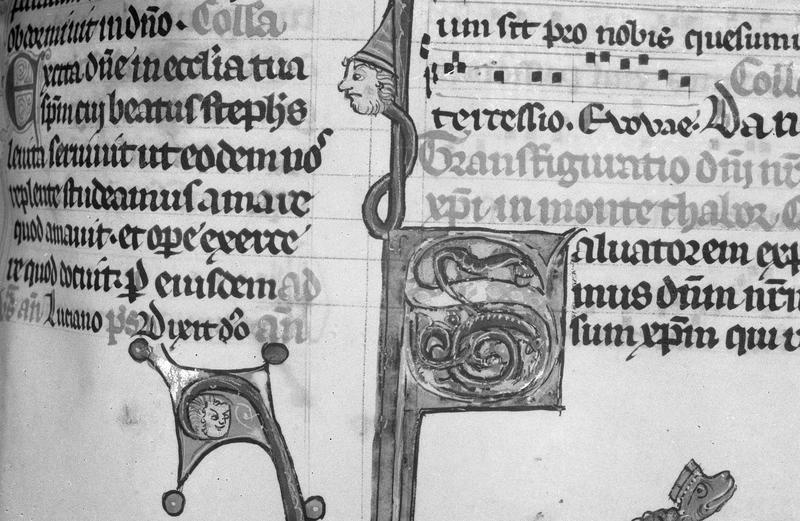 obdormiuit in dño. Colla
Exita dñe in ecclia tua
spm cuj beatus stephs
leuita seruiuit ut eodem nos
replente studeamus amare
quod amauit. et ope exerce
re quod docuit. P eiusdem ad
Luciano ps Dixit dño añ
um sit pro nobis quesumu
Coll
tercessio. Evovae. Dan
Transfiguratio dnj nrj
xpi in monte thabor
Saluatorem exp
mus dum nrm
sum xpm qui